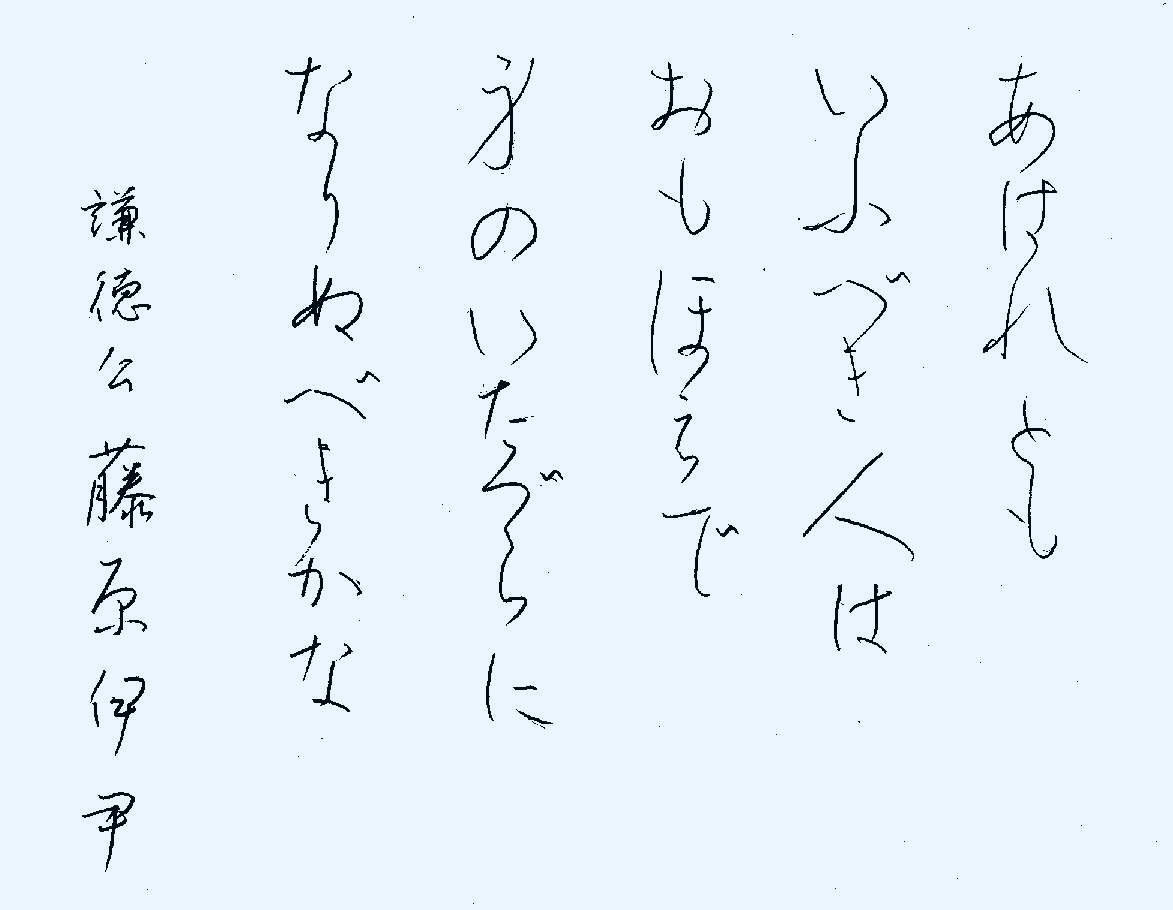 あはれとも
いふべき人は
おもほえで
身のいたづらに
なりぬべきかな
謙徳公 藤原伊尹